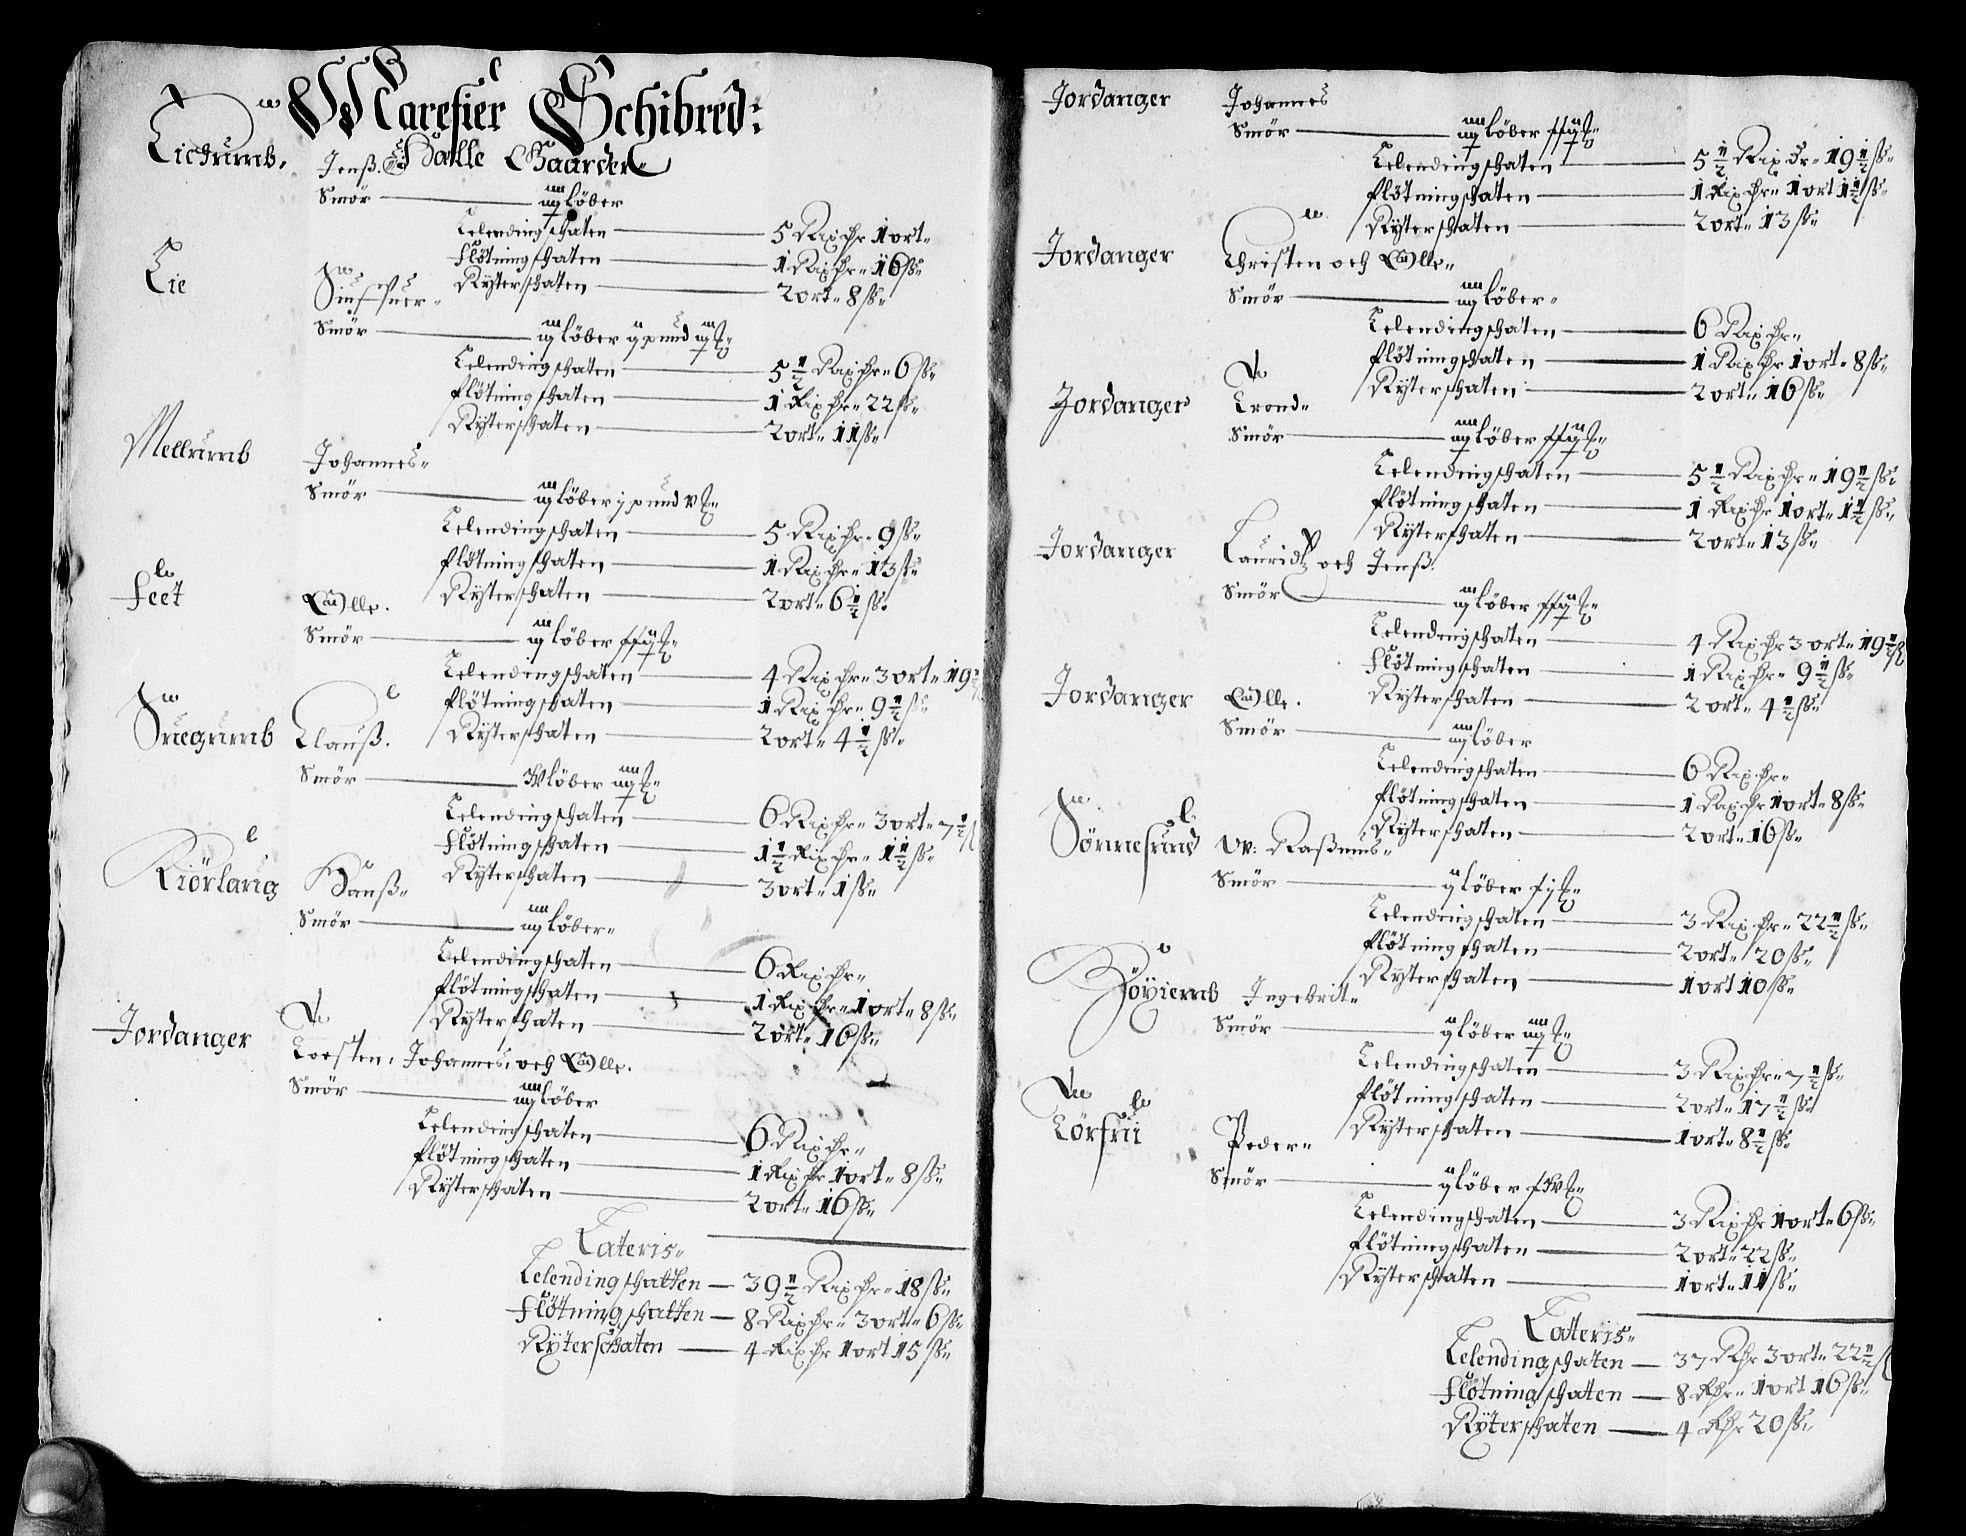 Marefier Schibred:
Halle Gaarder
Lidrumb. Jenß.
Smör — iiij löber
Lelendingschaten — 5 Rixdhr 1 ort
flötningschaten — 1 Rixdhr 16 ss
Rÿterschaten — 2 ort 8 ss
Lie
Smör — iiij löber ij pund iiij
Lelendingschaten — 5 ½ Rixdhr 6 ss
flötningschaten — 1 Rixdhr 22 ss
Rÿterschaten — 2 ort 11 ss
Mellrumb Johannes
Smör — iiij löber j pund v
Lelendingschaten — 5 Rixdhr 9 ss
flötningschaten — 1 Rixdhr 13 ss
Rÿterschaten — 2 ort 6 ½ ss
feet Olle.
Smör — iiij löber
Lelendingschaten — 4 Rixdhr 3 ort 19 ½
flötningschaten — 1 Rixdhr 9 ½ ss
Rÿterschaten — 2 ort 4 ½ ss
Clauß.
Smör — löber iiij
Lelendingschaten — 6 Rixdhr 3 ort 7 ½ ss
flötningschaten — 1 ½ Rixdhr 1 ½ ss
Rÿterschaten — 3 ort 1 ss
Kiörlaug Hanß
Smör — iiij löber
Lelendingschaten — 6 Rixdhr
flötningschaten — 1 Rixdhr 1 ort 8 ss
Rÿterschaten — 2 ort 16 ss
Jordanger Torsten, Johannes, och Olle.
Smör — iiij löber
Lelendingschaten — 6 Rixdhr
flötningschaten — 1 Rixdhr 1 ort 8 ss
Rÿterschaten — 2 ort 16 ss
Lateris
Lelendingschatten — 39 ½ Rixdhr 18 ss
flötningschatten — 8 Rixdhr 3 ort 6 ss
Rÿterschaten — 4 Rixdhr 1 ort 15 ss
Jordanger Johannes
Smör — iiij löber
Lelendingschaten — 5 ½ Rixdhr 19 ½ ss
flötningschaten — 1 Rixdhr 1 ort 1 ½ ss
Rÿterschaten — 2 ort 13 ss
Jordanger Christen och Olle
Smör — iiij löber
Lelendingschaten — 6 Rixdhr
flötningschaten — 1 Rixdhr 1 ort 8 ss
Rÿterschaten — 2 ort 16 ss
Jordanger Trond
Smör — iiij löber
Lelendingschaten — 5 ½ Rixdhr 19 ½ ss
flötningschaten — 1 Rixdhr 1 ort 1 ½ ss
Rÿterschaten — 2 ort 13 ss
Jordanger Lauridtz och Jenß.
Smör — iiij löber
Lelendingschaten — 4 Rixdhr 3 ort 19 ½ ss
flötningschaten — 1 Rixdhr 9 ½ ss
Rÿterschaten — 2 ort 4 ½ ss
Jordanger Olle.
Smör — iiij löber
Lelendingschaten — 6 Rixdhr
flötningschaten — 1 Rixdhr 1 ort 8 ss
Rÿterschaten — 2 ort 16 ss
Sönnesund Raßmus
Smör — ij löber
Lelendingschaten — 3 Rixdhr 22 ½ ss
flötningschaten — 2 ort 20 ss
Rÿterschaten — 1 ort 10 ss
Ingebrit
Smör — ij löber iiij
Lelendingschaten — 3 Rixdhr 7 ½ ss
flötningschaten — 2 ort 17 ½ ss
Rÿterschaten — 1 ort 8 ½ ss
Peder
Smör — ij löber
Lelendingschaten — 3 Rixdhr 1 ort 6 ss
flötningschaten — 2 ort 22 ss
Rÿterschaten — 1 ort 11 ss
Lateris
Lelendingschaten — 37 Rdhr 3 ort 22 ½ ss
flötningschatten — 8 Rdhr 1 ort 16 ss
Rÿterschaten — 4 Rdhr 20 ss